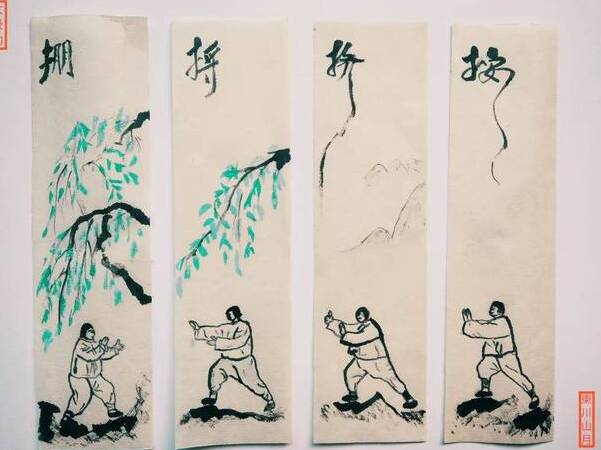 掤
捋
挤
按
東川山月